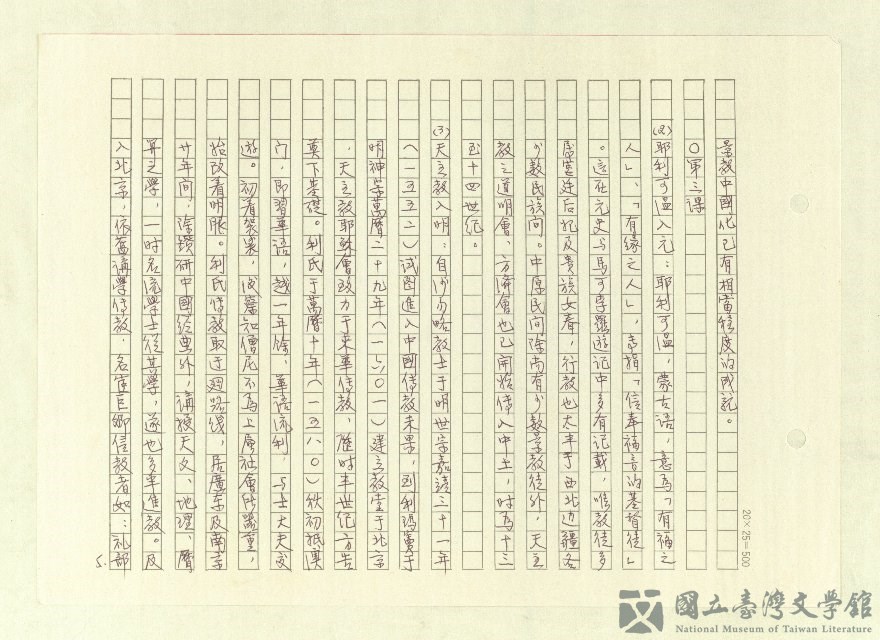 景教中國化已有相當程度的成就。
○第三課
(2)耶利可溫入元：耶利可溫，蒙古語，意為「有福之
人」、「有緣之人」，專指「信奉福音的基督徒」
。這在元史与馬可孛羅遊记中多有记載，唯教徒多
屬宮廷后妃及貴族女眷，行教也太半于西北边疆各
少數民族间。中原民间除尚有少數景教徒外，天主
教之道明會、方濟會也已開始傳入中土，时為十三
至十四世纪。
(3)天主教入明：自沙勿略教士于明世宗嘉靖三十一年
(一五五二)試图進入中國傳教未果，到利瑪竇于
明神宗萬曆二十九年(一六〇一)建立教堂于北京
，天主教耶穌會致力于來華傳教，歷时半世纪方告
奠下基礎。利氏于萬曆十年(一五八〇)秋初抵澳
门，即習華语，越一年餘，華语流利，与士大夫交
遊。初着袈裟，後審知僧尼不為上層社會所器重，
始改着明服。利氏傳教取迂迴路線，居廣东及南京
廿年间，除鑽研中國经典外，講授天文、地理、曆
算之學，一时名流學士從其學，遂也多率進教。及
入北京，依舊講學傳教，名宦巨卿信教者如：礼部
5.
20×25=500
國立臺灣文學館
National Museum of Taiwan Literature